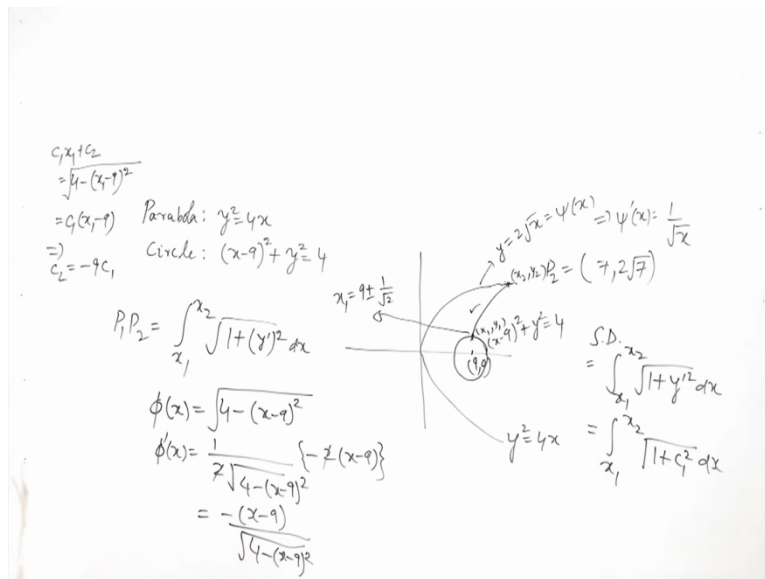 c₁x₁+c₂
=√(4-(x₁-9)²)
=c₁(x₁-9)
⇒
c₂=-9c₁
Parabola: y²=4x
Circle: (x-9)²+y²=4
P₁P₂= ∫ₓ₁ˣ² √(1+(y')²) dx
ϕ(x)=√(4-(x-9)²)
ϕ'(x)= 1/(2√(4-(x-9)²)) {-2(x-9)}
= -(x-9)/√(4-(x-9)²)
y=2√x=ψ(x) ⇒ψ'(x)= 1/√x
(x₂,y₂)P₂=(7,2√7)
x₁=9±1/√2
(x₁,y₁)
(x-9)²+y²=4
(9,0)
y²=4x
S.D.
= ∫ₓ₁ˣ² √(1+y'²) dx
= ∫ₓ₁ˣ² √(1+c₁²) dx